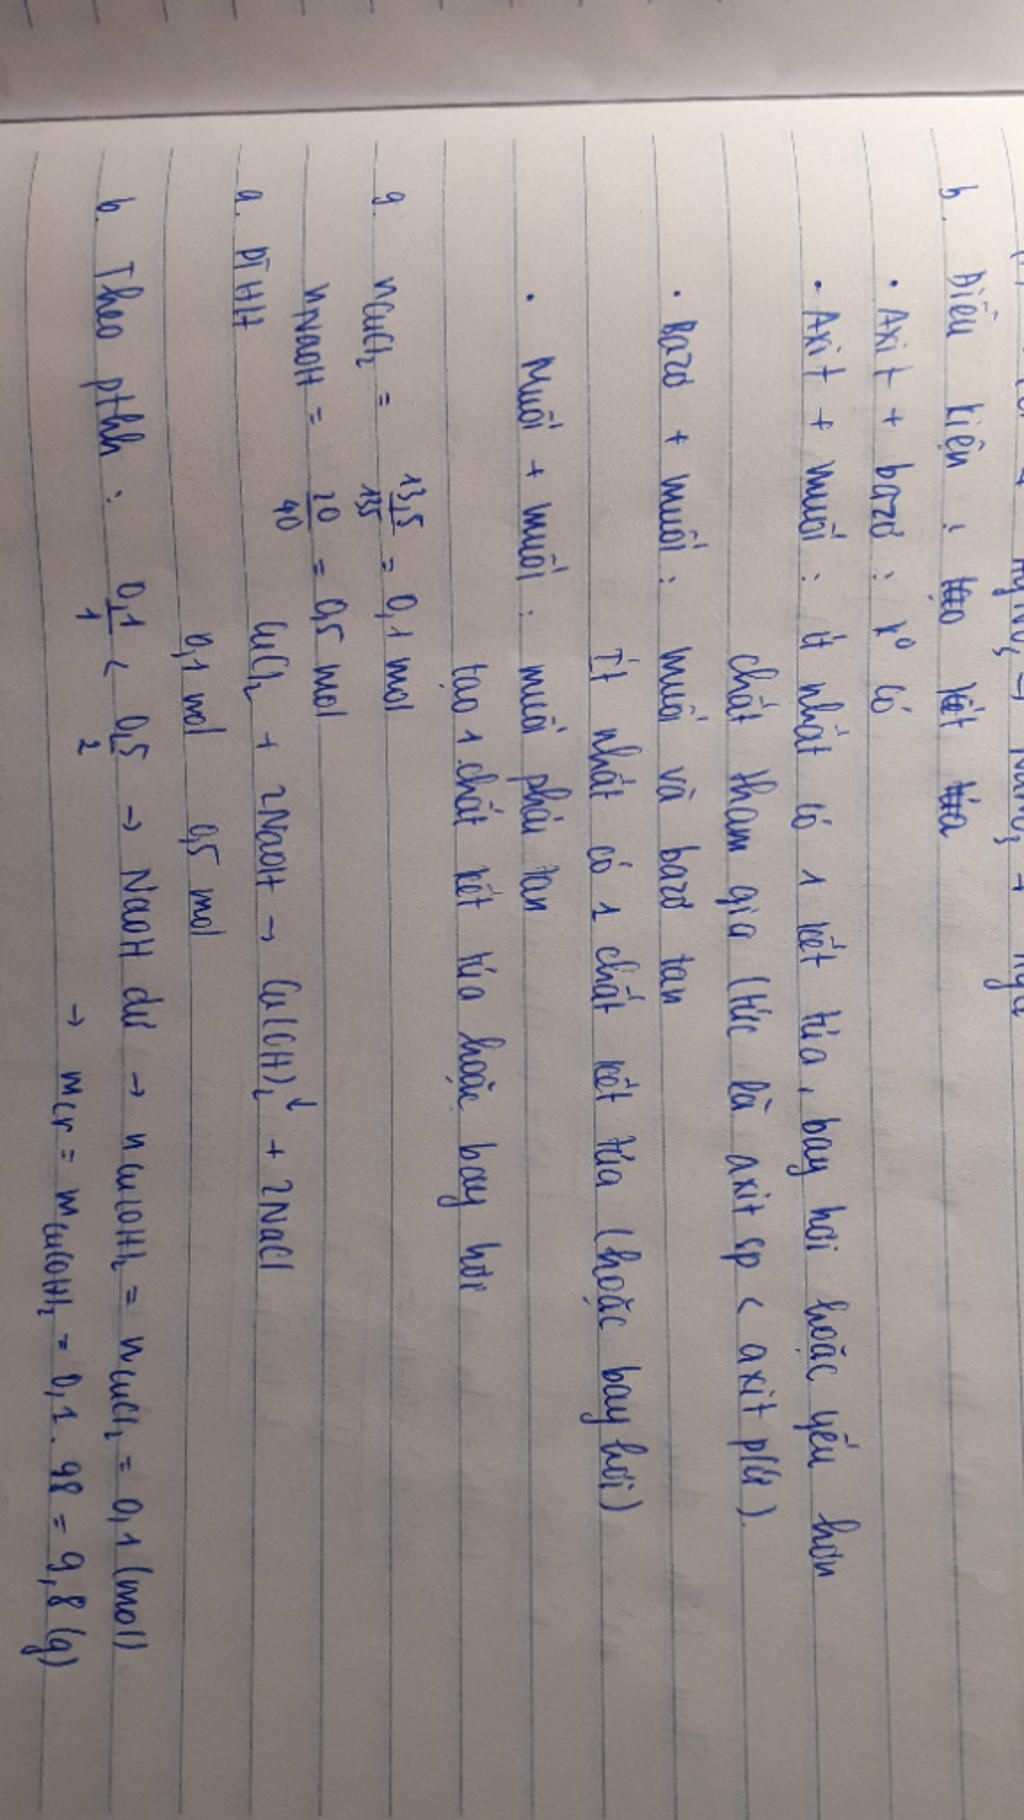 b. Điều kiện : tạo kết tủa
• Axit + bazơ : k⁰ có
• Axit + muối : ít nhất có 1 kết tủa, bay hơi hoặc yếu hơn
chất tham gia (tức là axit sp < axit pứ).
• Bazơ + muối : muối và bazơ tan
Ít nhất có 1 chất kết tủa (hoặc bay hơi)
• Muối + muối : muối phải tan
tạo 1 chất kết tủa hoặc bay hơi
9. nCuCl₂ = 13,5/135 = 0,1 mol
nNaOH = 20/40 = 0,5 mol
a. PTHH CuCl₂ + 2NaOH → Cu(OH)₂↓ + 2NaCl
0,1 mol 0,5 mol
b. Theo pthh : 0,1/1 < 0,5/2 → NaOH dư → nCu(OH)₂ = nCuCl₂ = 0,1 (mol)
→ mcr = mCu(OH)₂ = 0,1 . 98 = 9,8 (g)